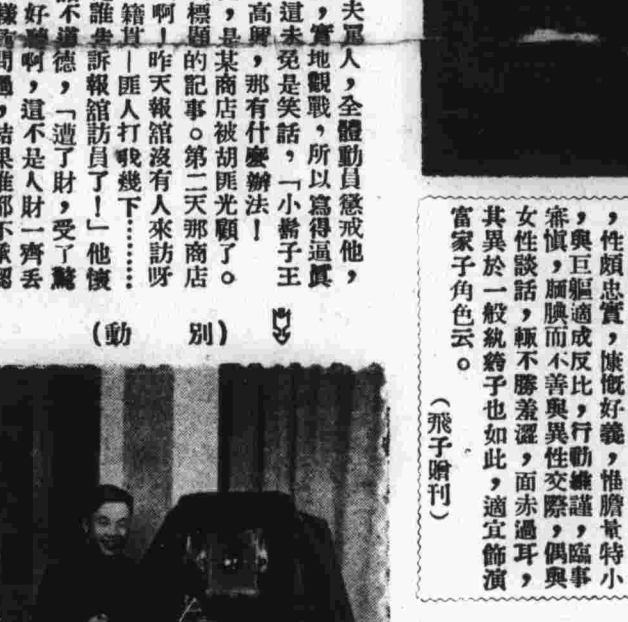 ，性頗忠實，慷慨好義，惟膽量特小
，與巨軀適成反比，行動維謹，臨事
審愼，腼腆而不善與異性交際，偶與
女性談話，輒不勝羞澀，面赤過耳，
其異於一般紈綺子也如此，適宜飾演
富家子角色云。
（飛子贈刊）
夫罵人，全體動員懲戒他，
，實地觀戰，所以寫得逼眞
這未免是笑話，「小辮子王
高興，那有什麼辦法！
，是某商店被胡匪光顧了。
標題的記事。第二天那商店
啊！昨天報舘沒有人來訪呀
籍貫—匪人打我幾下………
誰告訴報舘訪員了！」他懷
不道德，「遭了財，受了驚
好聽啊，這不是人財一齊丢
問過，結果誰都不承認
（別動）